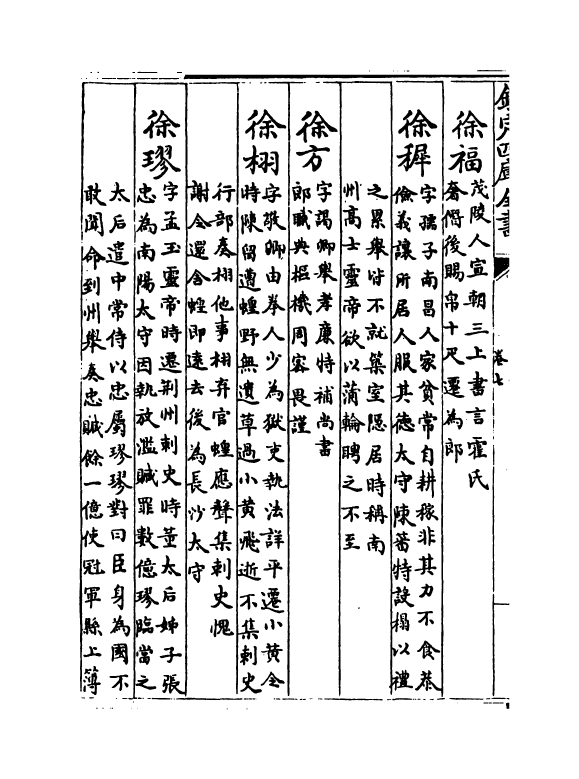 欽定四庫全書
卷七
徐福
茂陵人宣朝三上書言霍氏
奢僭後賜帛十尺遷為郎
徐稺
字孺子南昌人家貧常自耕稼非其力不食恭
儉義讓所居人服其德太守陳蕃特設榻以禮
之累舉皆不就築室隱居時稱南
州高士靈帝欲以蒲輪聘之不至
徐方
字謁卿舉孝廉特補尚書
郎職典樞機周密畏謹
徐栩
字敬卿由拳人少為獄吏執法詳平遷小黄令
時陳留遭蝗野無遺草過小黄飛逝不集刺史
行部奏栩他事栩弃官蝗應聲集刺史愧
謝令還舍蝗即遠去後為長沙太守
徐璆
字孟玉靈帝時遷荆州刺史時董太后姊子張
忠為南陽太守因執放濫贓罪數億璆臨當之
太后遣中常侍以忠屬璆璆對曰臣身為國不
敢聞命到州舉奏忠贓餘一億使冠軍縣上簿